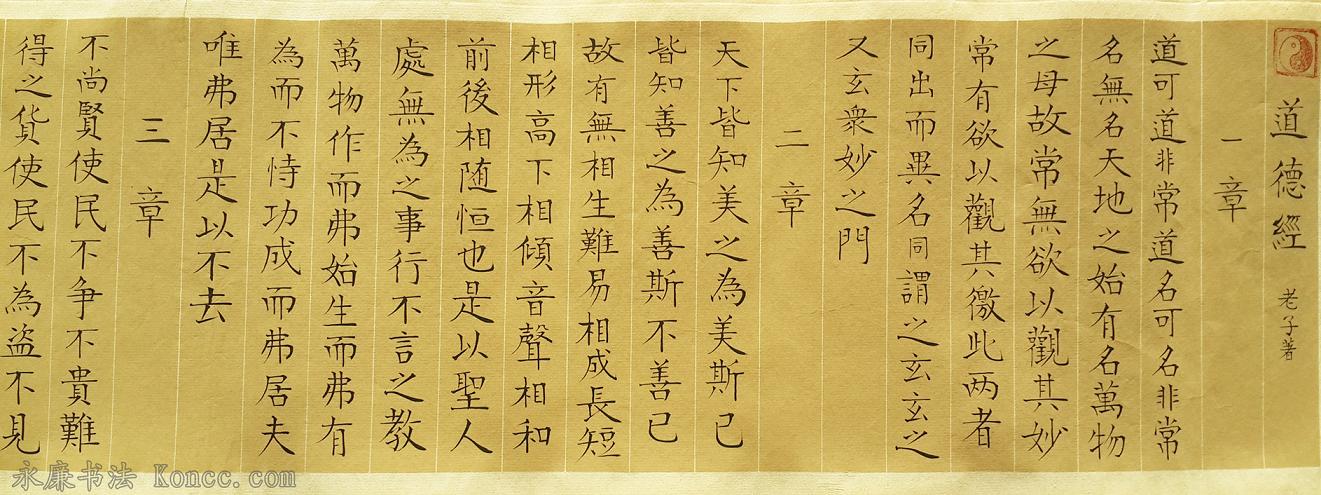 道德經 老子著
一章
道可道非常道名可名非常
名無名天地之始有名萬物
之母故常無欲以觀其妙
常有欲以觀其徼此两者
同出而異名同謂之玄玄之
又玄衆妙之門
二章
天下皆知美之為美斯已
皆知善之為善斯不善已
故有無相生難易相成長短
相形高下相傾音聲相和
前後相随恒也是以聖人
處無為之事行不言之教
萬物作而弗始生而弗有
為而不恃功成而弗居夫
唯弗居是以不去
三章
不尚賢使民不争不貴難
得之貨使民不為盜不見
永廉书法 Koncc.com